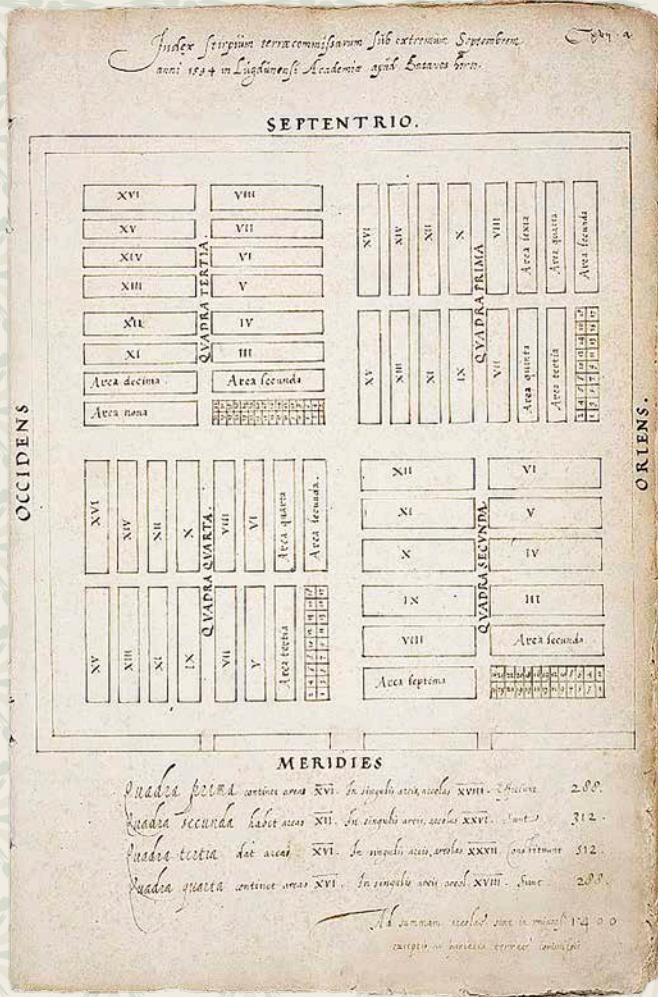 Index stirpium terræ commissarum sub extremum Septembrem
anni 1594 in Lugdunensi Academia apud Batavos horto.
SEPTENTRIO.
OCCIDENS
ORIENS.
QVADRA TERTIA.
XVI VIII
XV VII
XIV VI
XIII V
XII IV
XI III
Area decima. Area secunda
Area nona
QVADRA PRIMA
XVI XIV XII X VIII Area sexta Area quarta Area secunda
XV XIII XI IX VII Area quinta Area tertia
QVADRA QVARTA.
XVI XIV XII X VIII VI Area quarta Area secunda.
XV XIII XI IX VII V Area tertia
QVADRA SECVNDA.
XII VI
XI V
X IV
IX III
VIII Area secunda
Area septima
MERIDIES
Quadra prima continet areas XVI. In singulis areis, areolas XVIII. 288.
Quadra secunda habet areas XII. In singulis areis, areolas XXVI. Sunt 312.
Quadra tertia dat areas XVI. In singulis areis, areolas XXXII. Constituunt 512.
Quadra quarta continet areas XVI. In singulis areis areol. XVIII. Sunt 288.
Ad summam areolas sunt in 1400